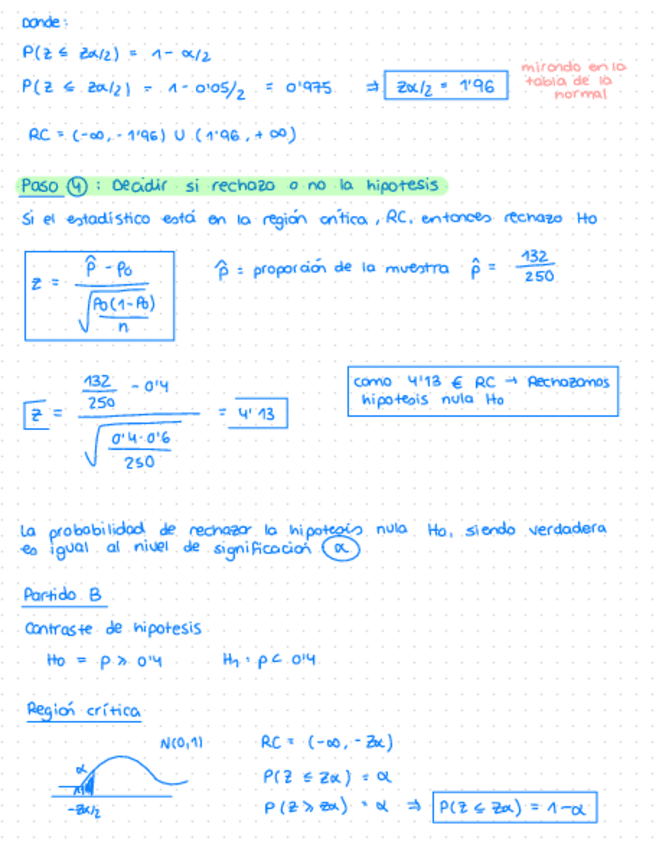 Donde:
P(Z ≤ Zα/2) = 1 - α/2
P(Z ≤ Zα/2) = 1 - 0'05/2 = 0'975 ⇒ Zα/2 = 1'96
mirando en la
tabla de la
normal
RC = (-∞, -1'96) U (1'96, +∞)
Paso ④: Decidir si rechazo o no la hipotesis
Si el estadístico está en la región crítica, RC, entonces rechazo Ho
Z = (p̂ - Po) / √(Po(1-Po)/n)
p̂ = proporción de la muestra p̂ = 132/250
Z = (132/250 - 0'4) / √(0'4·0'6/250) = 4'13
como 4'13 € RC → Rechazamos
hipotesis nula Ho
La probabilidad de rechazar la hipotesis nula Ho, siendo verdadera
es igual al nivel de significación α
Partido B
Contraste de hipotesis
Ho = p ≥ 0'4 H1: p < 0'4
Región crítica
N(0,1)
α
-Zα/2
RC = (-∞, -Zα)
P(Z ≤ Zα) = α
P(Z ≥ Zα) = α ⇒ P(Z ≤ Zα) = 1-α